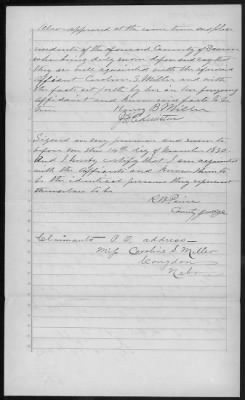 Also appeared at the same time and place
residents of the aforesaid County of Dawson
who being duly sworn depose and say that
they are well acquainted with the aforesaid
affiant Caroline S. Miller and with
the facts set forth by her in her foregoing
affidavit and know said facts to be
true
Henry B. Miller
J. Edmiston
Signed in my presence and sworn to
before me this 14th day of 1890.
And I hereby certify that I am acquainted
with the affiants and know them to
be the identical persons they represent
themselves to be
County Judge
Claimants P.O. address
Miss Caroline S. Miller
Cozydon
Nebr